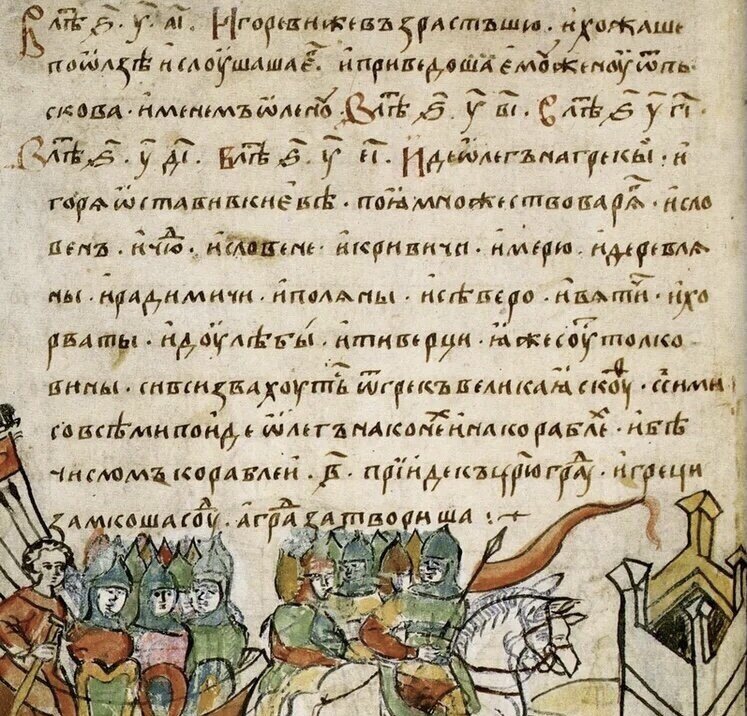 В лѣⷮ ҂ѕ҃ · у҃ · а҃і · Игореви же възрастъшю · и хожаше
по ѡлзѣ и слоушаша еⷢ҇ · и приведоша емоу женоу ѿ пь
скова · именемъ ѡленоу В лѣⷮ ҂ѕ҃ · у҃ в҃і · В лѣⷮ ҂ѕ҃ у҃ г҃і ·
В лѣⷮ ҂ѕ҃ · у҃ д҃і · В лѣⷮ ҂ѕ҃ · у҃ · е҃і · Иде ѡлегъ на грекы · и
горѧ ѡстави в киевѣ · поıѫ множество варѧⷢ · и сло
венъ · и чюⷣ · и словене · и кривичи · и мерю · и деревлѧ
ны · и радимичи · и полѧны · и сѣверо · и вѧтичи · и хо
рваты · и доулѣбы · и тиверци · ꙗже соуⷮ толко
вины · си вси звахоутьⷭ ѿ грекъ великаꙗ скоуⷴ · с сими
со всѣми поиде ѡлегъ на конеⷯ и на кораблеⷯ · и бѣ
числомъ кораблеи · ҂в҃ · прїиде къ цр҃юграⷣу · и греци
замкоша соуⷣ · а граⷣ затвориша :·